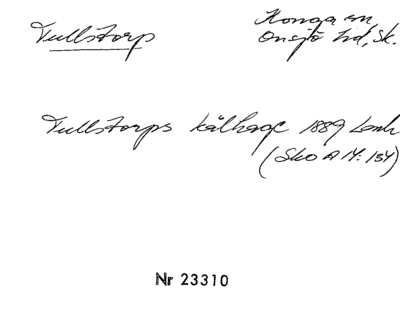 Tullstorp
Konga sn,
Onsjö hd, Sk.
Tullstorps kålhage 1889 Lmh
(Sko A M: 154)
Nr 23310